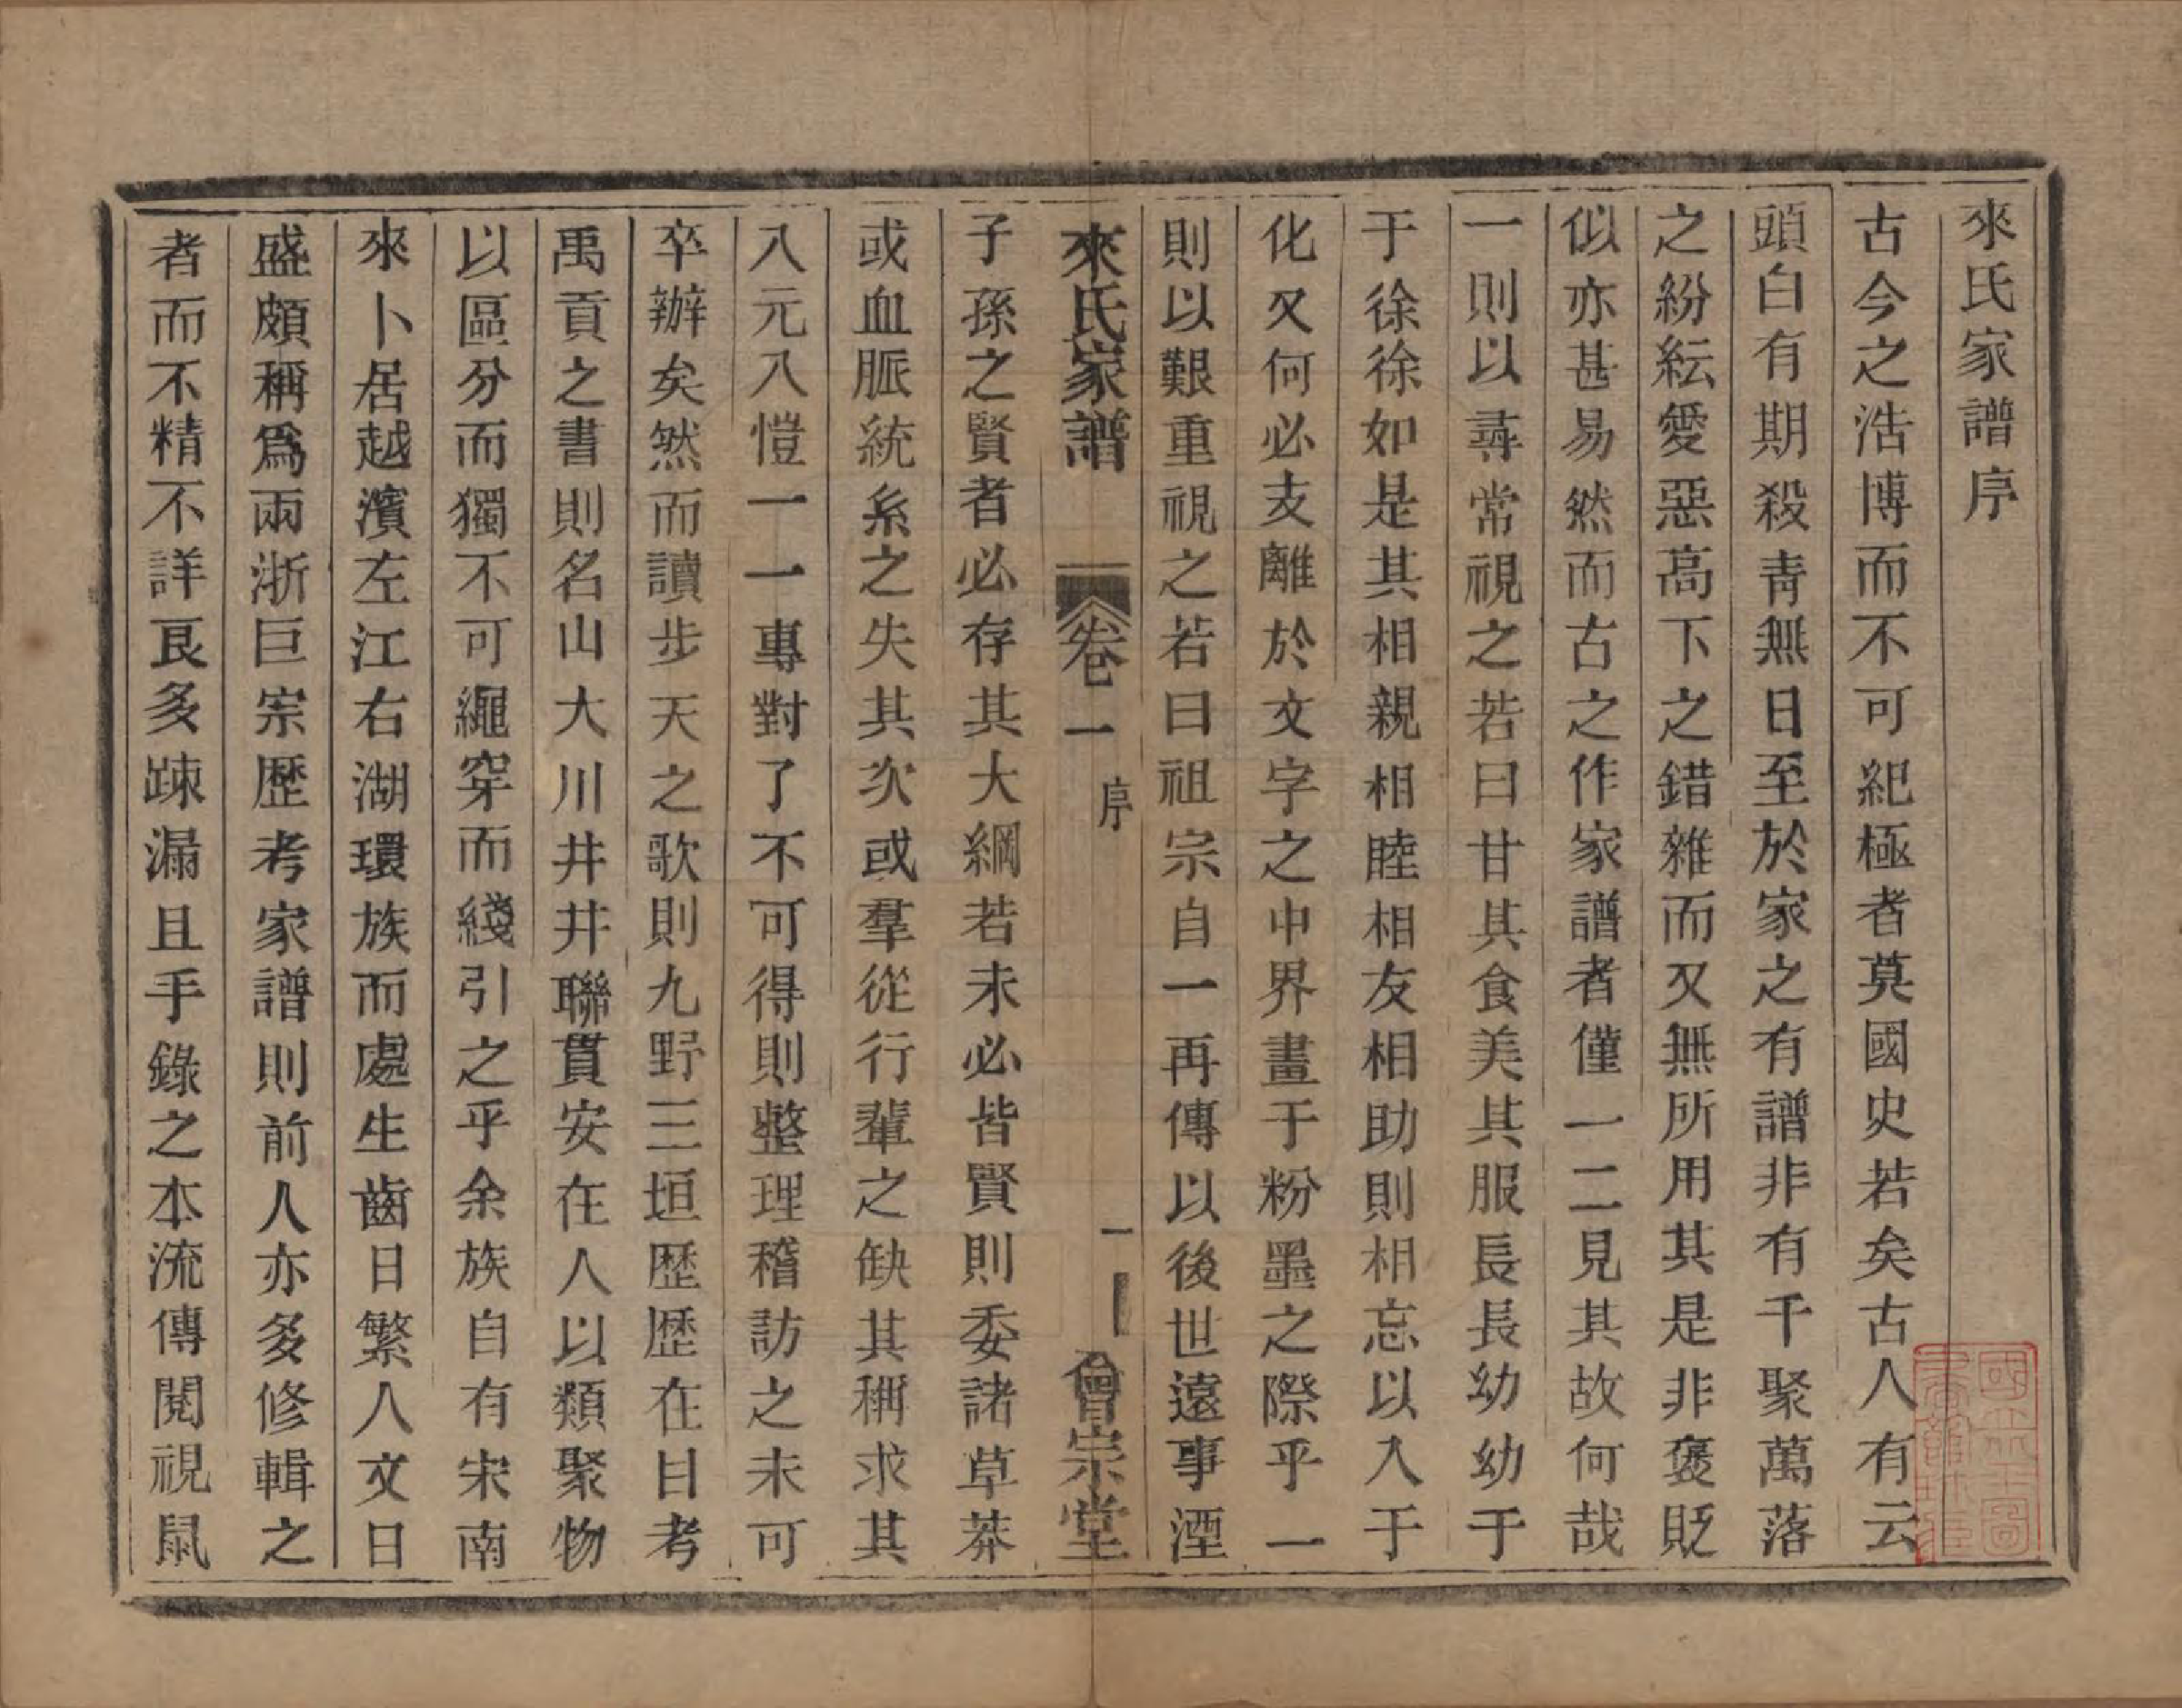 來氏家譜序
古今之浩博而不可紀極者莫國史若矣古人有云
頭白有期殺青無日至於家之有譜非有千聚萬落
之紛紜愛惡高下之錯雜而又無所用其是非褒貶
似亦甚易然而古之作家譜者僅一二見其故何哉
一則以尋常視之若曰甘其食美其服長長幼幼于
于徐徐如是其相親相睦相友相助則相忘以入于
化又何必支離於文字之中界畫于粉墨之際乎一
則以艱重視之若曰祖宗自一再傳以後世遠事湮
來氏家譜 卷一 序 一 會宗堂
子孫之賢者必存其大綱若未必皆賢則委諸草莽
或血脈統系之失其次或羣從行輩之缺其稱求其
八元八愷一一專對了不可得則整理稽訪之未可
卒辦矣然而讀步天之歌則九野三垣歷歷在目考
禹貢之書則名山大川井井聯貫安在人以類聚物
以區分而獨不可繩穿而綫引之乎余族自有宋南
來卜居越濱左江右湖環族而處生齒日繁人文日
盛頗稱爲兩浙巨宗歷考家譜則前人亦多修輯之
者而不精不詳艮多踈漏且手錄之本流傳閱視鼠